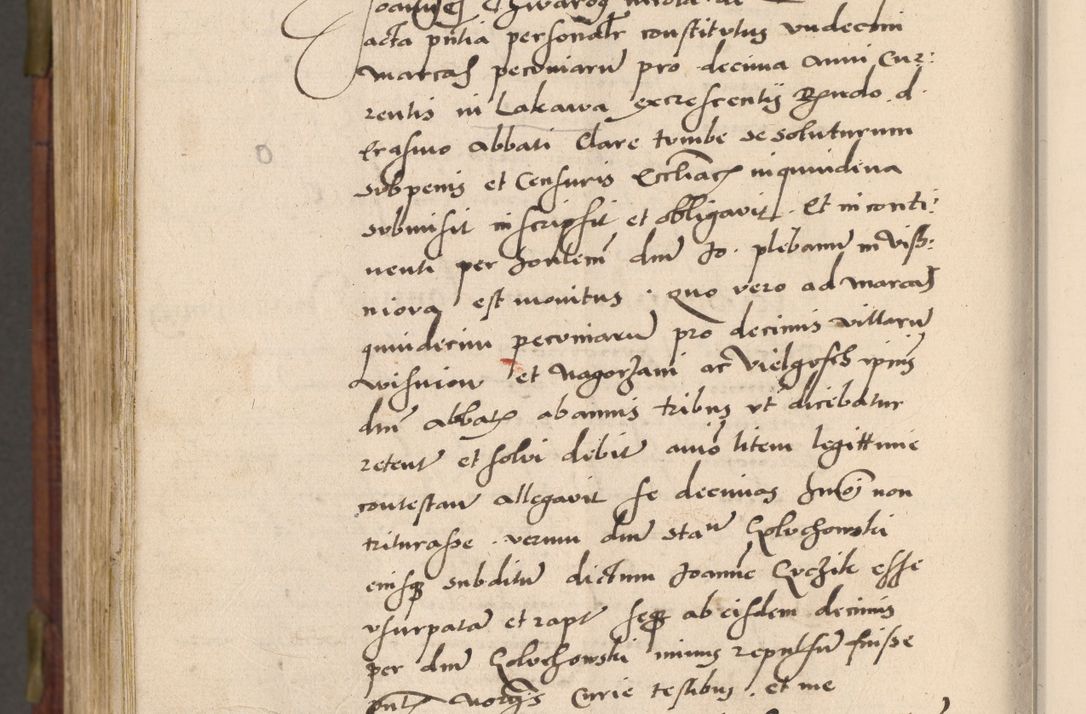 acta pntia personalr constitutus undecim
marcas pecuniarum pro decima anni Cur:
rentis in Lakawa excrescentij Rndo d.
Erasmo Abbati Clare tumbe se soluturum
sub penis et Censuris EcclIiacis in quindena
submisit inscripsit et obligavit. Et in conti:
nenti per honlem dnm Jo. plebanum in Viss:
niora est monitus. Quo vero ad marcas
quindecim pecuniarum pro decimis villarum
wisniow et Nagorzani ac Vielgosch ipsius
dni Abbatis ab annis tribus ut dicebatur
retent et solvi debit animo litem legittime
contestan allegavit se decimas non
triturasse. verum dnm Stan Golochowski
eiusque subditum dictum Joannem esse
usurpata et rapt seque ab eisdem decimis
per dnm Golochowski minus repulsum fuisse
pntibus Notariis Curie testibus. et me